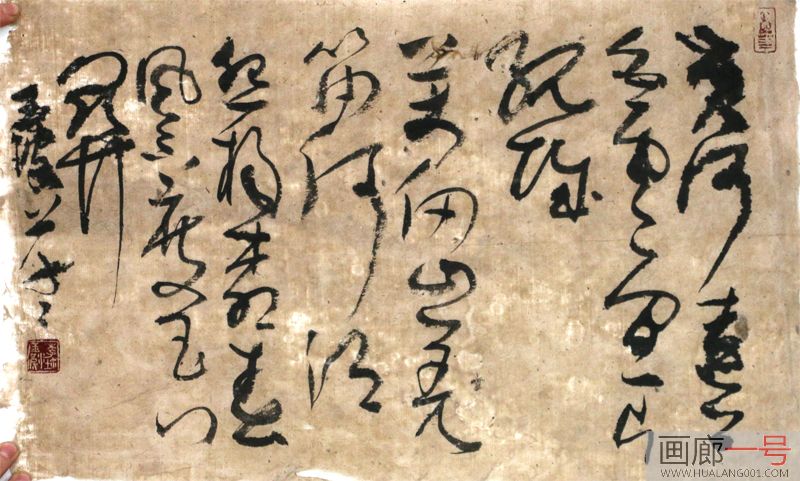 黄河遠上
白雲間一片
孤城
萬仞山羌
笛何須
怨楊柳春
風不度玉门
關
画廊一号
WWW.HUALANG001.COM